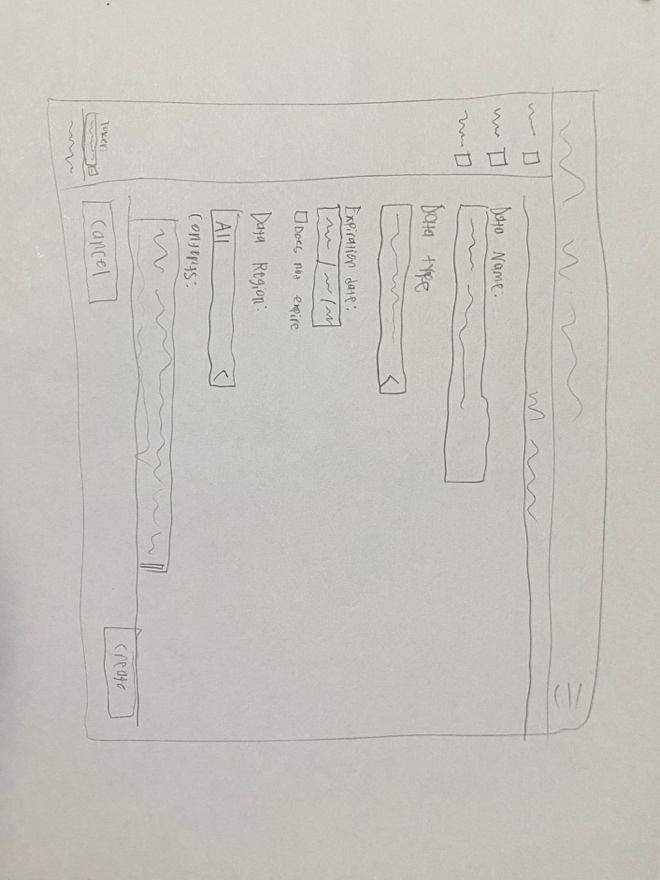 Data Name:
Data type
Expiration date:
Does not expire
Data Region:
All
Contents:
Token
Cancel
Create